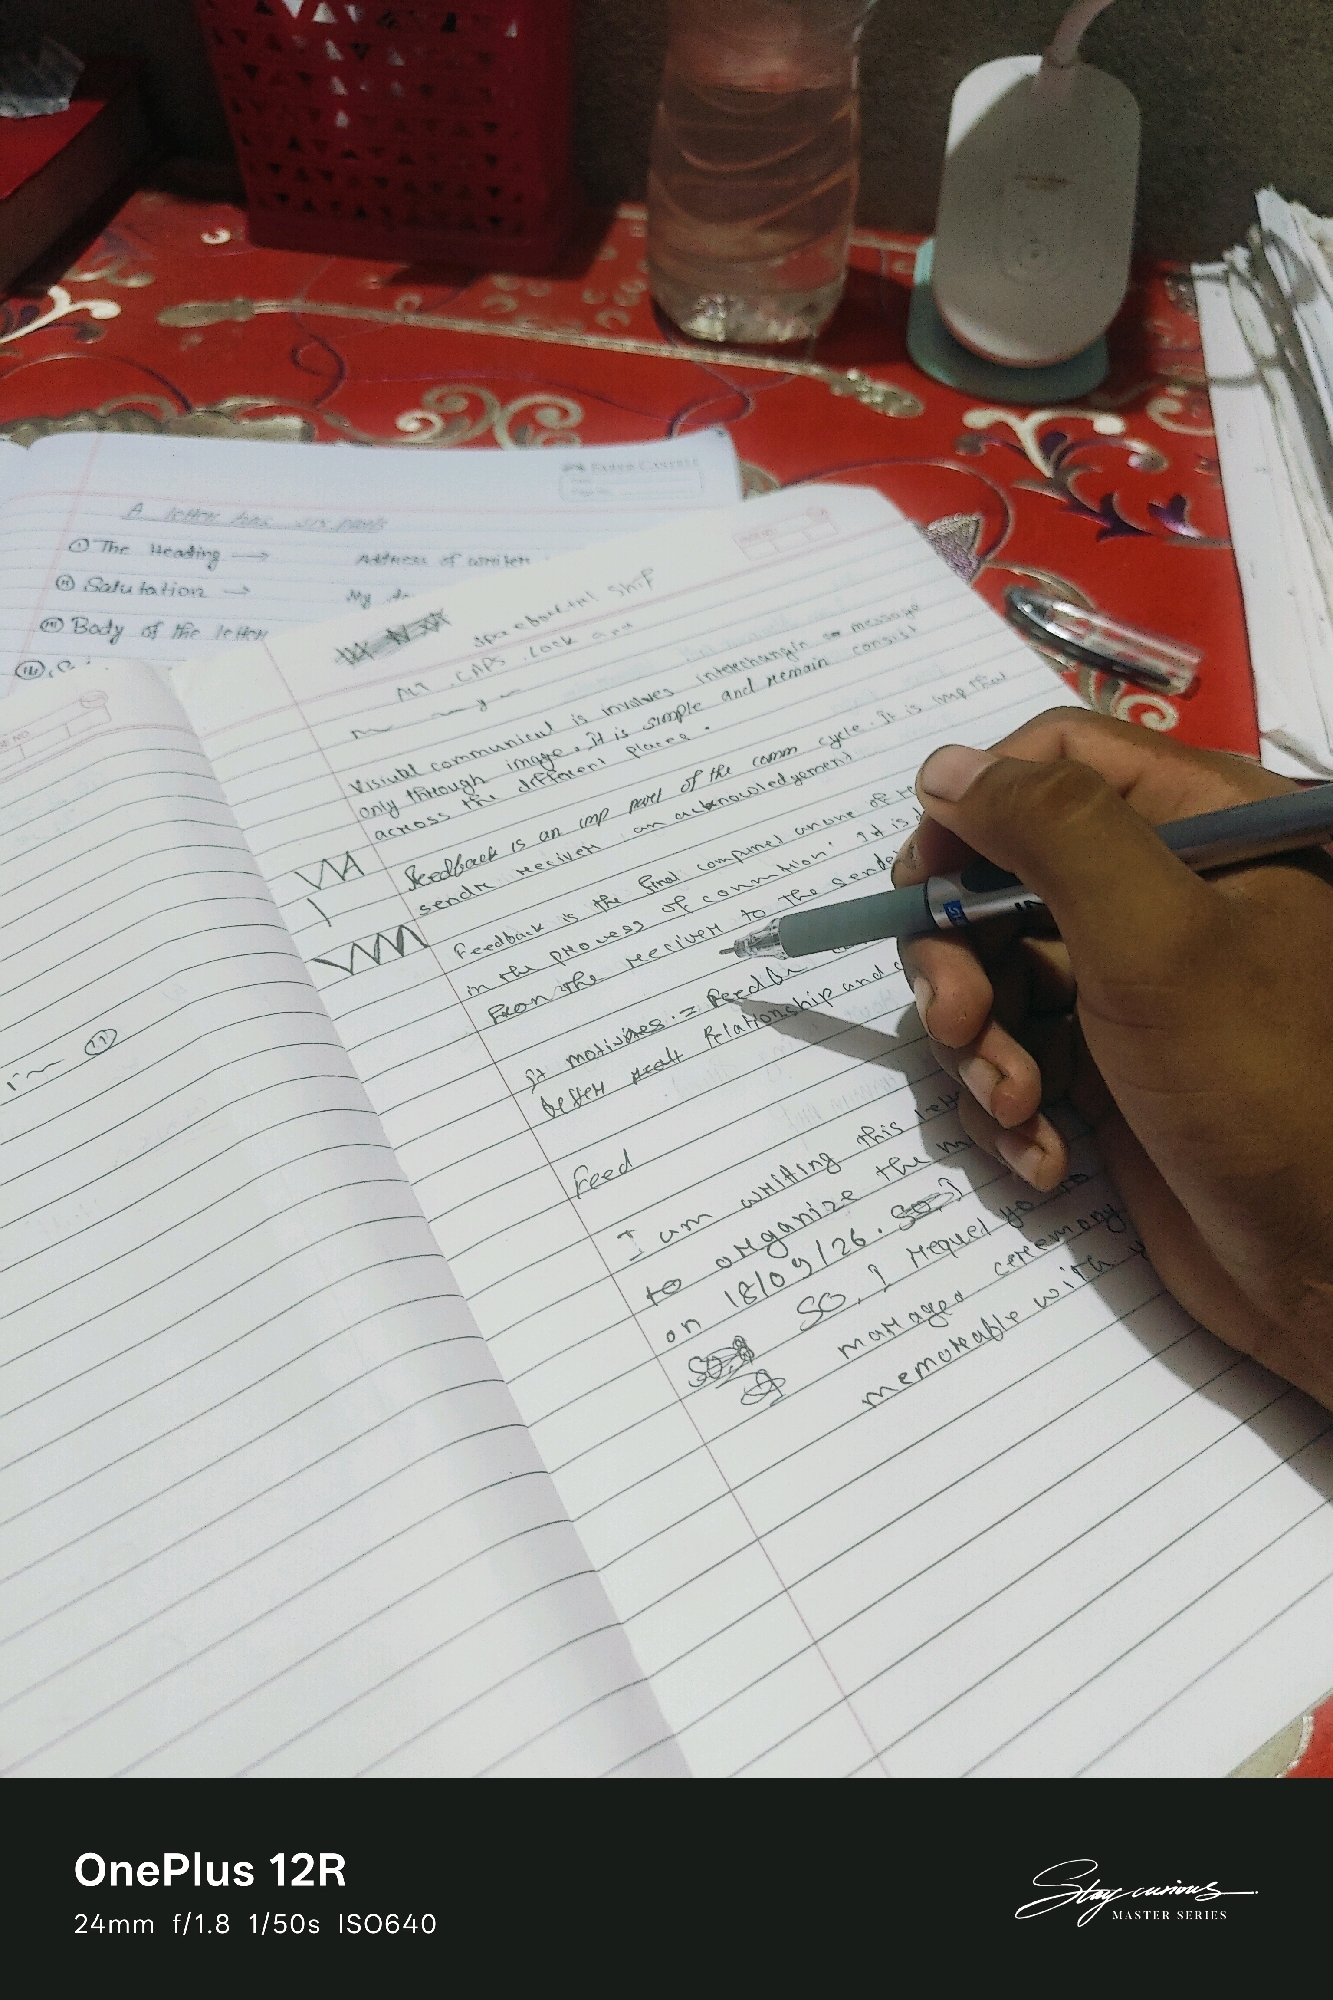 A letter has six parts
① The Heading → Address of writer
② Salutation → My de
③ Body of the letter
ship
ALT CAPS Lock and
Visiubl communicat is involves interchangin message
only through image. it is simple and remain consist
across the different places.
Feedback is an imp part of the comm cycle. It is imp that
sendr reciver an acknowledgement
Feedback is the final componet anone of
in the process of conmtion. It is
From the reciver to the sende
it motivates. = Feedb
better Relationship and
Feed
I am writing this lett
to organize the m
on 18/09/26. So, I
So, I requel yo
managed ceremony
memorable with y
11
OnePlus 12R
24mm f/1.8 1/50s ISO640
Stay curious
MASTER SERIES